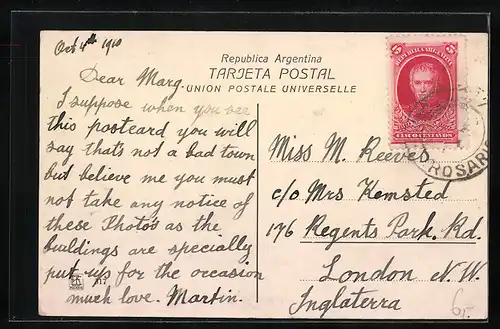 Oct 4th 1910
Republica Argentina
TARJETA POSTAL
UNION POSTALE UNIVERSELLE
Dear Marg.
I suppose when you see
this postcard you will
say that's not a bad town
but believe me you must
not take any notice of
these Photo's as the
buildings are specially
put up for the occasion
much love. Martin.
5 5
REPUBLICA ARGENTINA
CINCO CENTAVOS
ROSARIO
Miss M. Reeves
c/o Mrs Kemsted
176 Regents Park. Rd.
London N.W.
Inglaterra
6,-